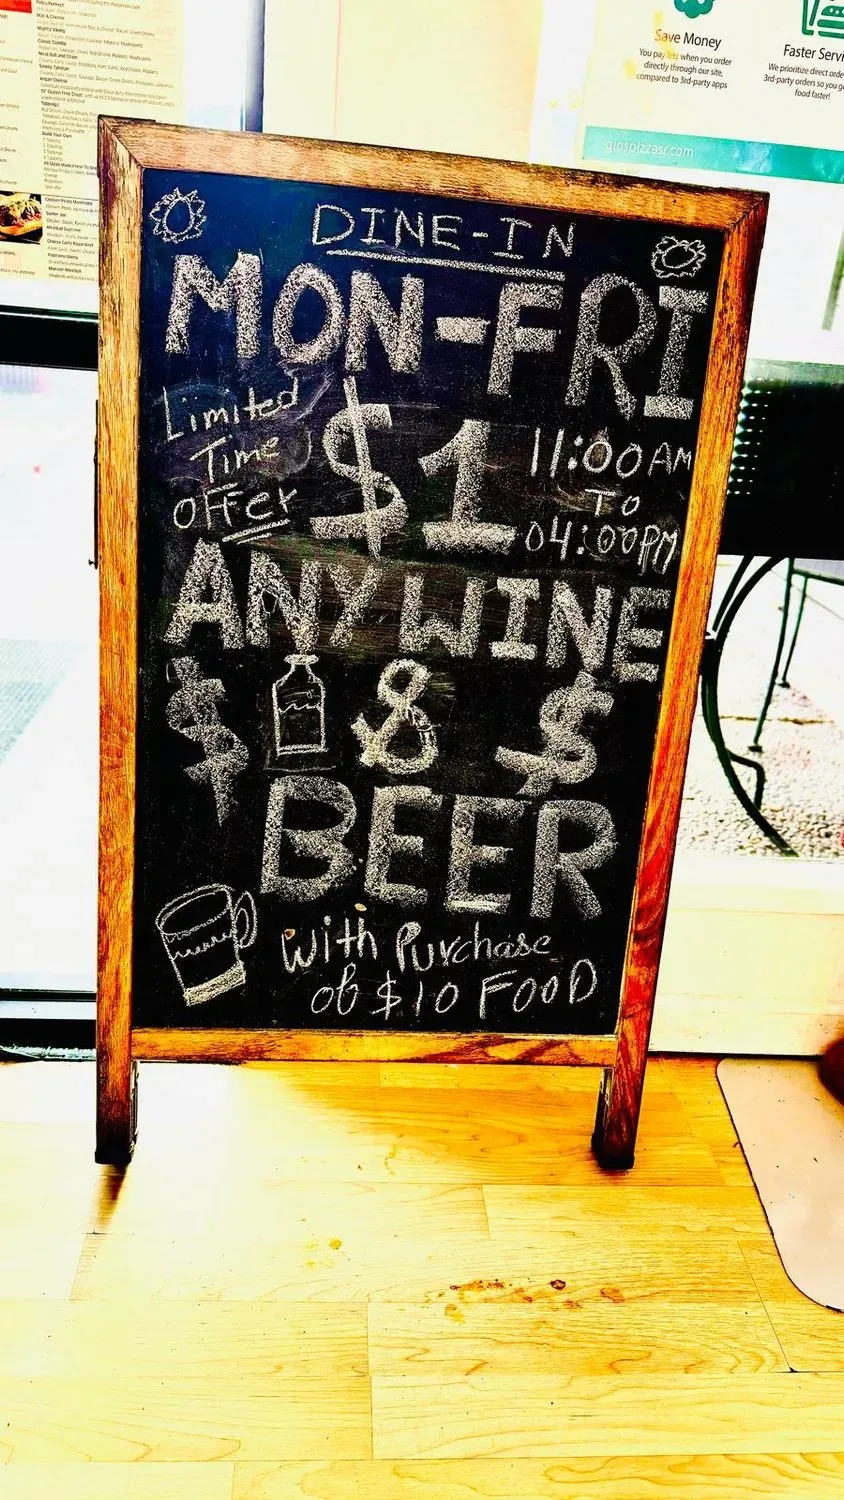 Save Money
You pay less when you order
directly through our site,
compared to 3rd-party apps
Faster Servi
We prioritize direct orde
3rd-party orders so you g
food faster!
giospizzasr.com
DINE-IN
MON-FRI
Limited
Time
OFFer
$1
11:00AM
TO
04:00PM
ANY WINE
$ & $
BEER
With Purchase
of $10 FOOD